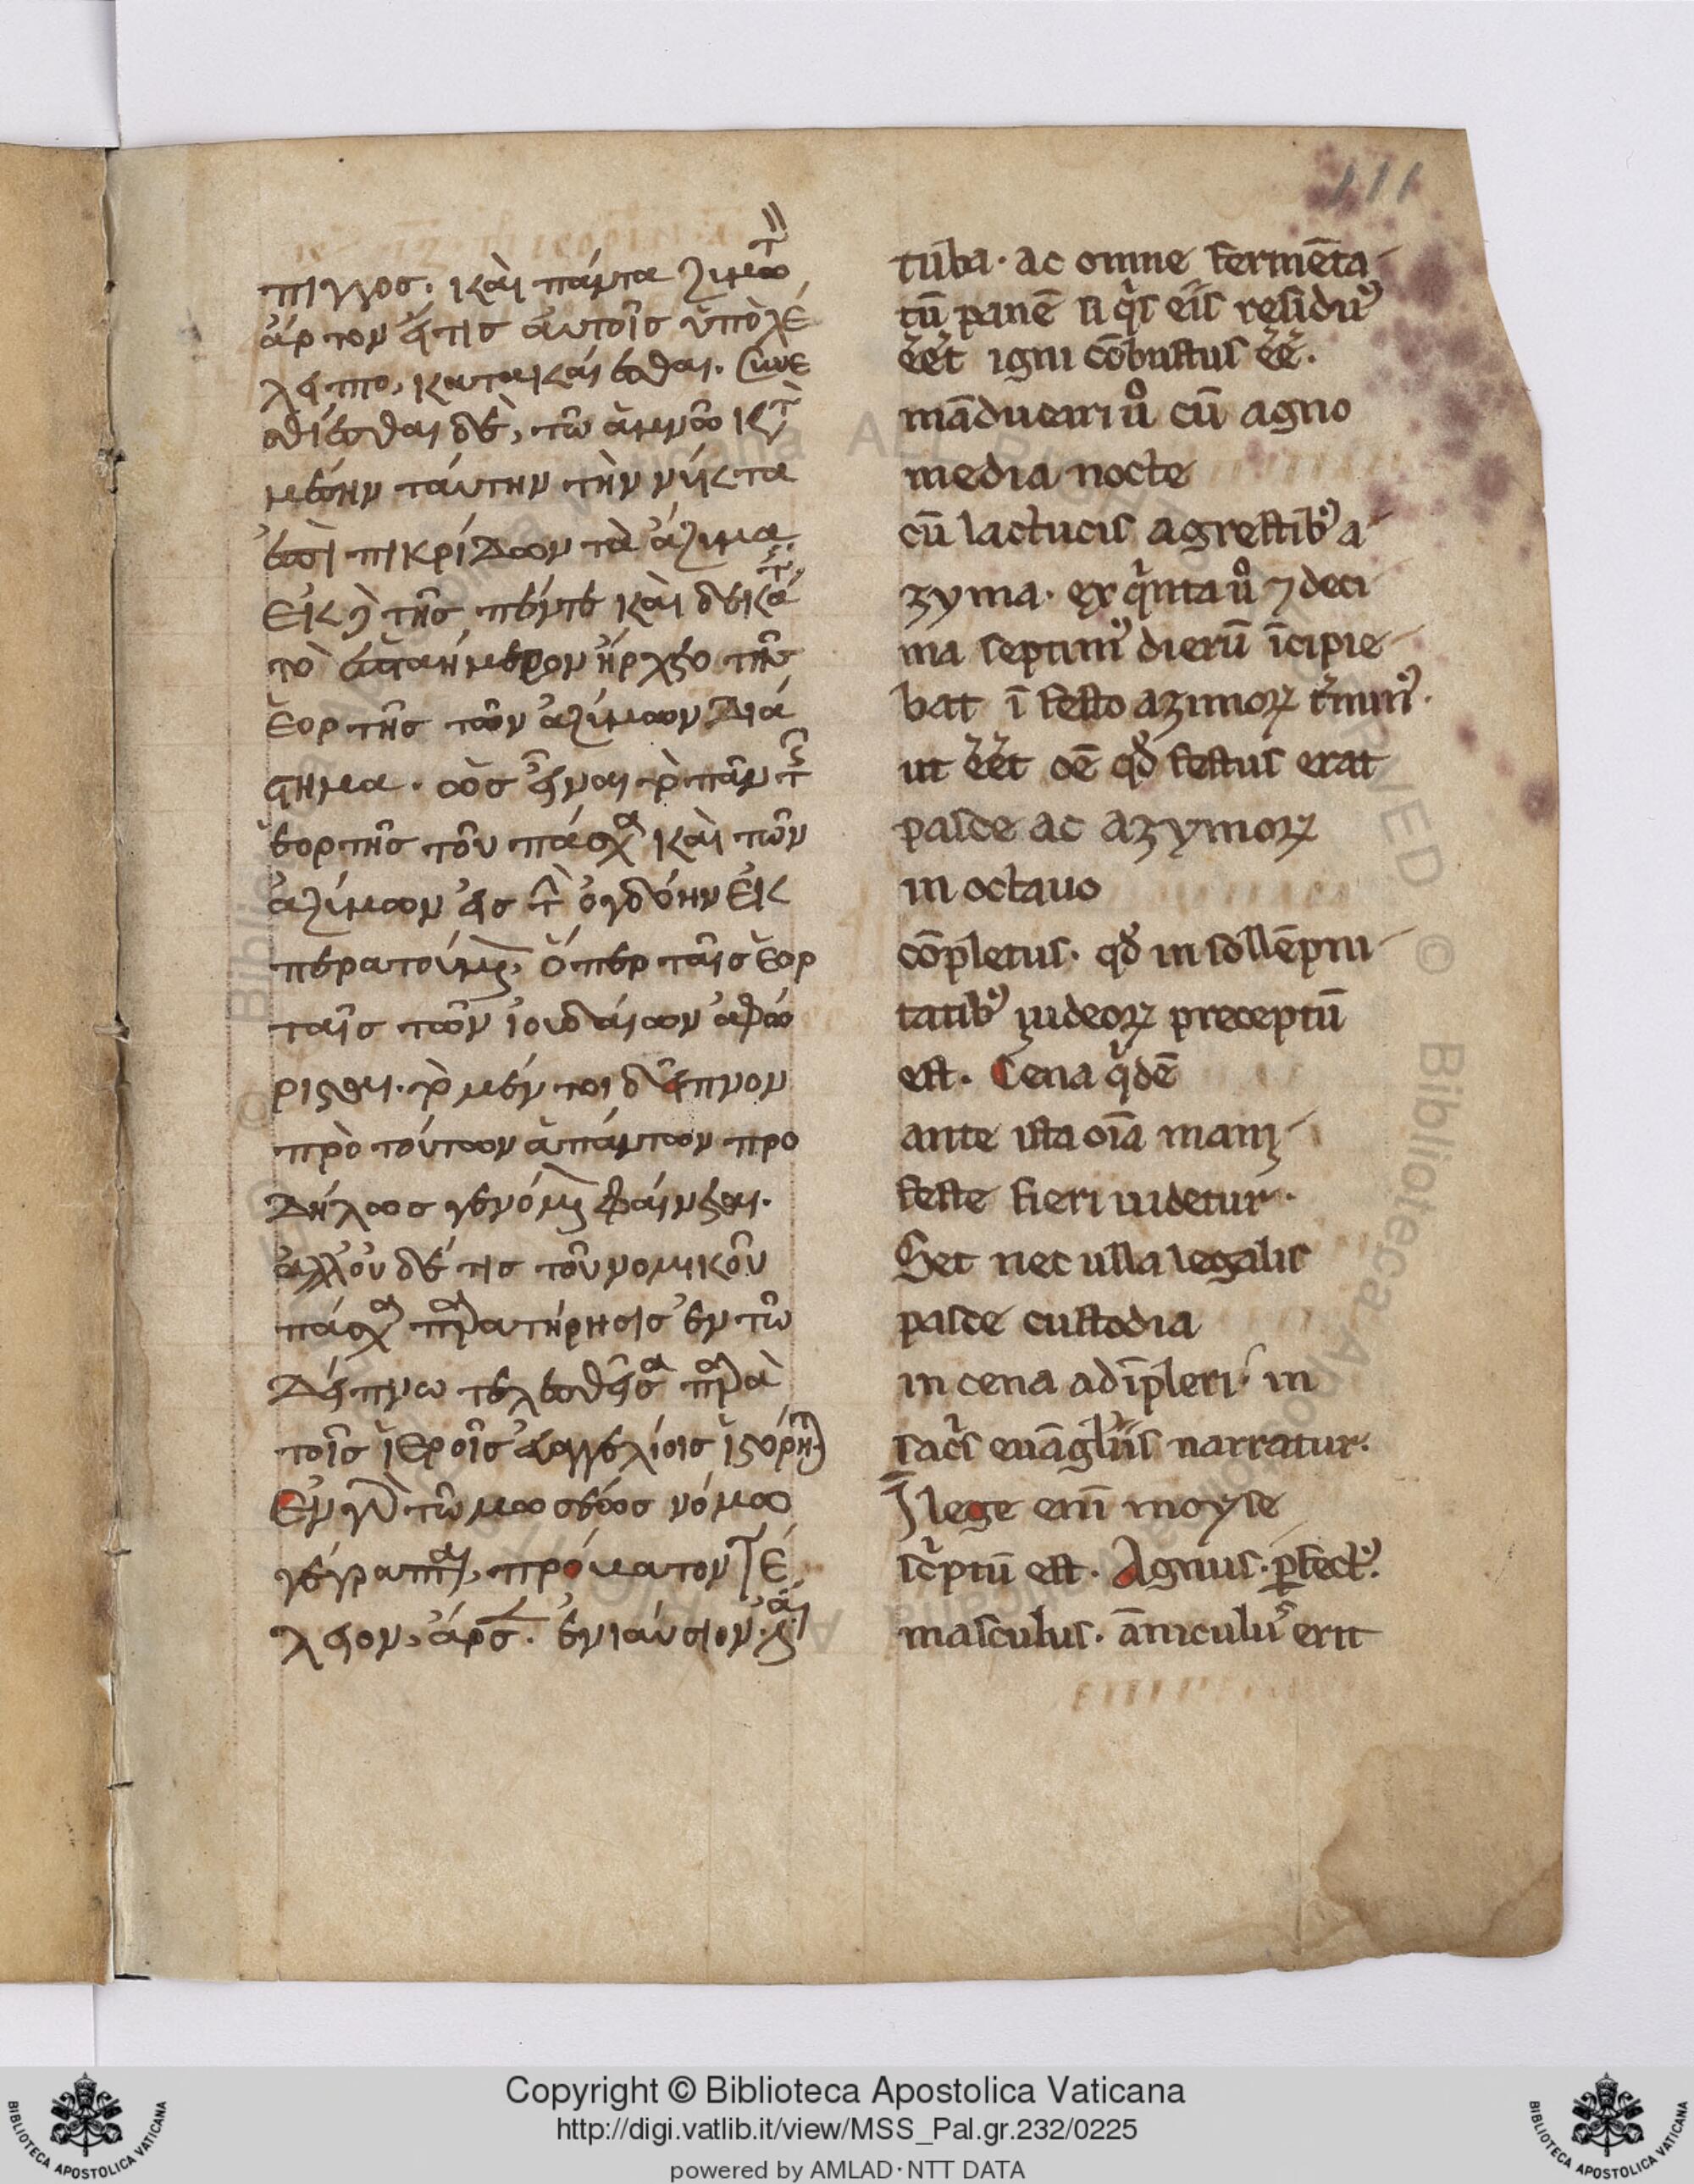 111
πιγγος. καὶ πάντα ζυμωτ
ἄρτον εἴτις ἀυτοῖς ὑπολέ
λειπτο, κατακαίεσθαι. συνε
σθίεσθαι δὲ, τῶ ἀμνῶ κτ
μέσην ταύτην τὴν νύκτα
ἐπὶ πικρίδων τὰ ἄζυμα.
ἐκ δὲ τῆς πέντε καὶ δεκάτ
τὸ ἑπταήμερον ἤρχετο τῆς
ἑορτῆς τῶν ἀζύμων διά
στημα. ὡς εἶναι τὸ πᾶν τ
ἑορτῆς τοῦ πάσχα καὶ τῶν
ἀζύμων εἰς τ ὀγδόην ἐκ
περατούμ ὅπερ ταῖς ἑορ
ταῖς τῶν ἰουδαίων ἀφώ
ρισται. τὸ μέν τοι δεῖπνον
πρὸ τούτων ἁπάντων προ
δήλως γενόμ φαίνεται.
ἀλλ' οὐδέ τις τοῦ νομικοῦ
πάσχα παρατήρησις ἐν τῶ
δείπνω τελεσθεῖσα παρὰ
τοῖς ἱεροῖς εὐαγγελίοις ἱστόρητ
Ἐν γὰρ τῶ μωσέως νόμω
γέγραπται, πρόβατον τέ
λειον, ἄρσ. ἐνιαύσιον ἔσται
tūba· ac omne fermēta-
tū panē si q̍s eis residuꝰ
eēt igni cōbustus eē.
māducari u̾ cū agno
media nocte
cū lactucis agrestib' a-
zyma. ex q̍nta u̾ ⁊ deci
ma septimꝰ dierū īcipie-
bat ī festo azimoꝝ t̾minꝰ.
ut eēt oē qd̾ festus erat
pasce ac azymoꝝ
in octauo
cōpletus. qd̾ in sollēpni-
tatib' iudeoꝝ preceptū
est. Cena q̍dē
ante ista oīa mani-
feste fieri uidetur.
Set nec ulla legalis
pasce custodia
in cena adīpleri in
sac̍s euāgliis narratur.
J̄ lege enī moyse
sc̍ptū est. Agnus. ꝑfectꝰ.
masculus. āniculuꝰ erit
Copyright © Biblioteca Apostolica Vaticana
http://digi.vatlib.it/view/MSS_Pal.gr.232/0225
powered by AMLAD·NTT DATA
BIBLIOTECA APOSTOLICA VATICANA
BIBLIOTECA APOSTOLICA VATICANA